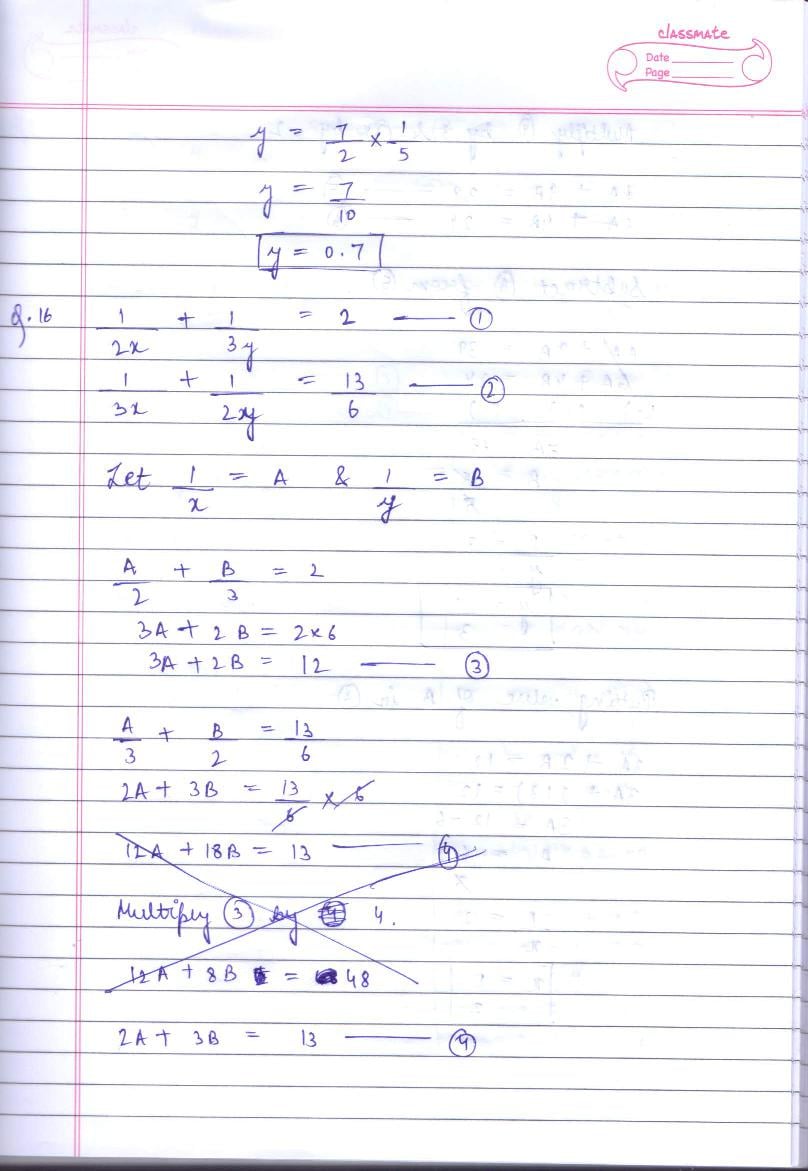 classmate
Date
Page
y = 7/2 × 1/5
y = 7/10
y = 0.7
Q.16 1/2x + 1/3y = 2 —— ①
1/3x + 1/2y = 13/6 —— ②
Let 1/x = A & 1/y = B
A/2 + B/3 = 2
3A + 2B = 2×6
3A + 2B = 12 —— ③
A/3 + B/2 = 13/6
2A + 3B = 13/6 × 6
12A + 18B = 13 —— ④
Multiply ③ by 4.
12A + 8B = 48
2A + 3B = 13 —— ④